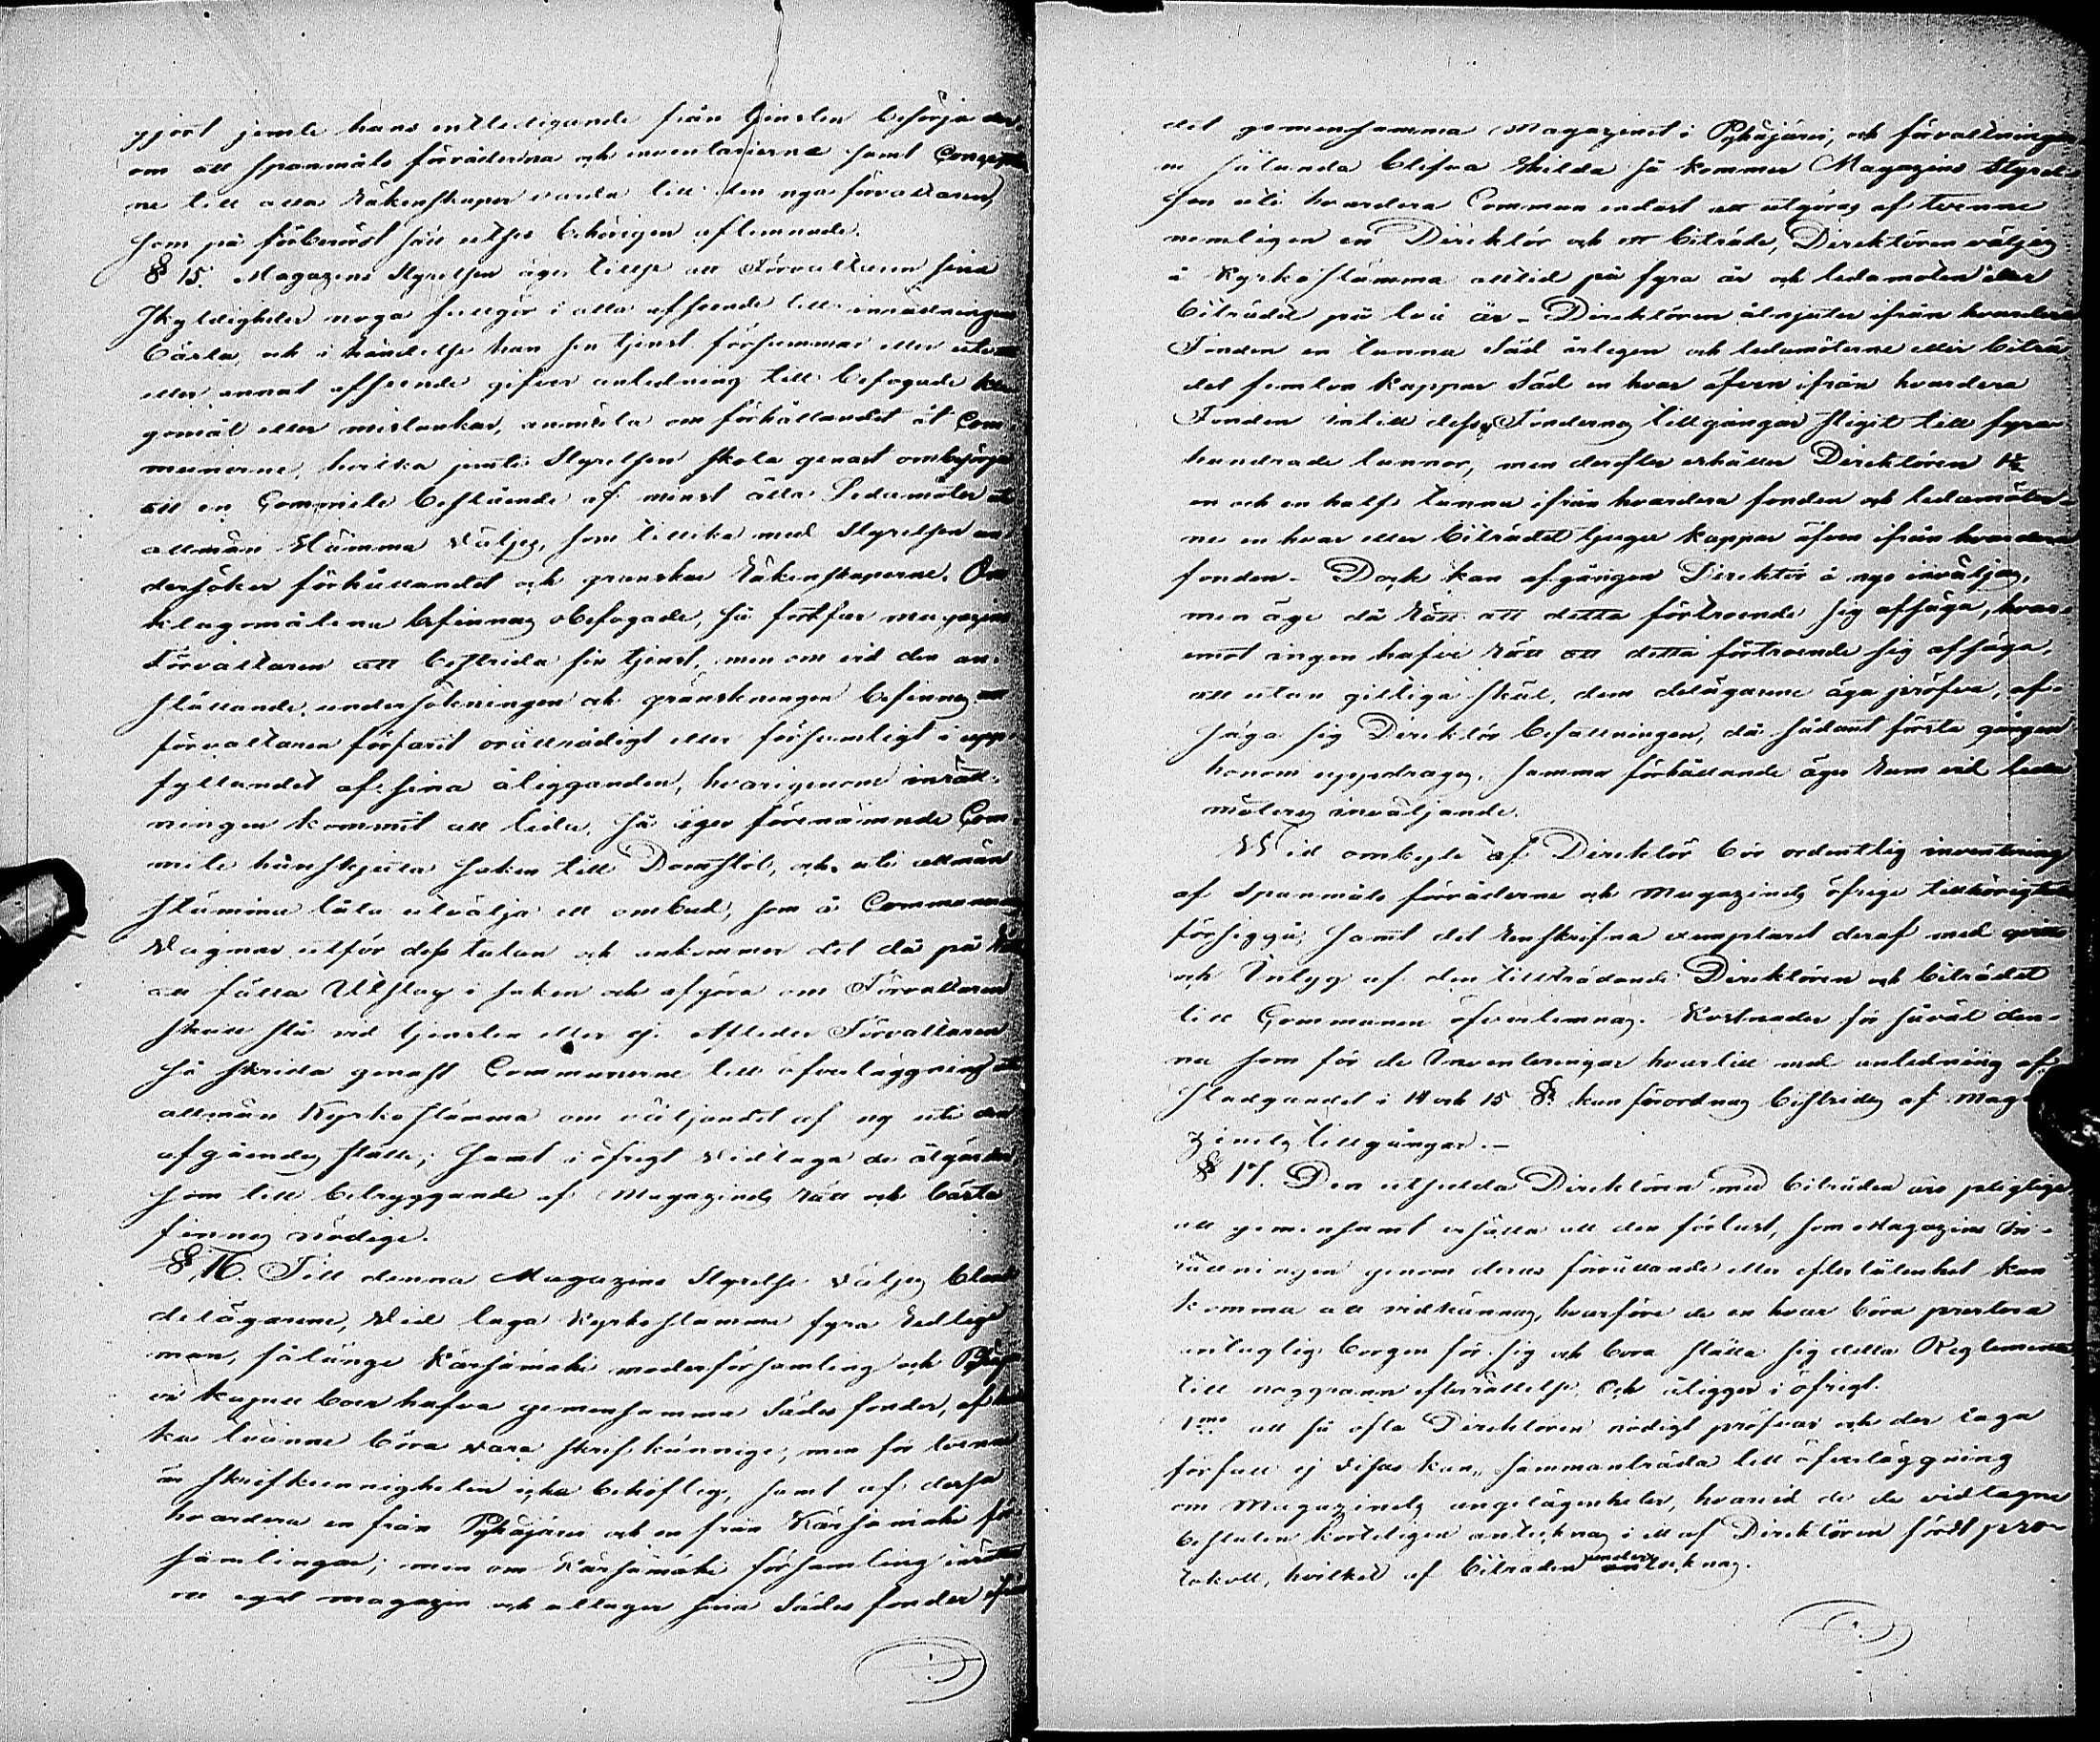 gjort jemte hans entledigande från tjensten besörja der-
om att spanmåls förråderna och inventarierna samt Concepte
ne till alla Räkenskaper varda till den nya förvaltaren,
som på förberörst sätt utses behörigen aflemnade.
§ 15. Magazins Styrelsen äger tillse att Förvaltaren sina
skyldigheter noga fullgör i alla afseende till inrättningens
bästa, och i händelse han sin tjenst försummar eller uti
eller annat afseende gifver anledning till befogade kla
gomål eller misstankar, anmäla om förhållandet åt Com
munerne, hvilka jemte Styrelsen skola genast ombesörja
att en Committe bestående af minst åtta Ledamöter uti
allmän Stämma väljes, som tillika med Styrelsen un
dersöker förhållandet och granskar Räkenskaperne. Om
klagomålena befinnas obefogade, så fortfar magazins
Förvaltaren att bestrida sin tjenst, men om vid den an-
ställande undersökningen och granskningen befinnes att
förvaltaren förfarit orättrådigt eller försumligt i upp-
fyllandet af sina åligganden, hvarigenom inrätt-
ningen kommit att lida, så äger förenämnde Com
mite hänskjuta saken till Domstol, och uti allmän
stämma låta utvälja ett ombud, som å Communens
vägnar utför dess talan och ankommer det då på Rätt
att fälla Utslag i saken och afgöra om Förvaltaren
skall stå vid tjensten eller ej. Afleder Förvaltaren
så skrida genast Communerne till öfverläggning uti
allmän Kyrkostämma om väljandet af ny uti den
afgåendes ställe; Samt i öfrigt vidtaga de åtgärder
som till betryggande af Magazinets rätt och bästa
finnas nödige.
§ 16. Till denna Magazins Styrelse väljes bland
delägarene, vid laga Kyrkostämma fyra Redlige
män, sålänge Kärsämäki moderförsamling och Pyhäjär
vi kapell boer hafva gemensamma Sädes fonder, af hvil
ka tvänne böra vara skrifkunnige, men för tvenne
är skrifkunnigheten icke behöflig, samt af dessa
hvardera en från Pyhäjärvi och en från Kärsämäki för-
samlingar; men om Kärsämäki församling inrättar
ett eget magazin och uttager sina Sädes fonder från
det gemensamma Magazinet i Pyhäjärvi, och förvaltningen
sålunda blifva skilda så kommer Magazins Styrel-
sen uti hvardera Commun endast att utgöras af tvenne
nemligen en Direktör och ett biträde, Direktören väljes
å Kyrkostämma alltid på fyra år och ledamoten eller
biträdet på två år. - Direktören åtnjuter ifrån hvardera
Fonden en tunna Säd årligen och ledamöterne eller biträ-
det femton kappar Säd en hvar äfven ifrån hvardera
Fonden intill dess Fondernas tillgångar stigit till fyra-
hundrade tunnor, men derefter erhåller Direktören 1½
en och en half tunna ifrån hvardera fonden och ledamöter-
ne en hvar eller biträdet tjugu kappar äfven ifrån hvardera
fonden. - Dock kan afgången Direktör å nyo inväljas,
men äge då Rätt att detta förtroende sig afsäga, hvar-
emot ingen hafve rätt att detta förtroende sig afsäga,
att utan giltiga skäl, dem delägarene äga pröfva, af-
säga sig Direktörbefattningen, då sådant första gången
honom uppdrages. Samma förhållande äger Rum vid leda
möters inväljande.
Vid ombyte af Direktör bör ordentlig inventering
af Spanmåls förråderne och Magazinets öfrige tillhörigheter
försiggå, samt det Renskrifna exemplaret deraf med qvitto
och Intyg af den tillträdande Direktören och biträdet
till Communen öfverlemnas. Kostnader för såväl den-
na som för de Inventeringar hvartill med anledning af
stadgandet i 14 och 15 §§ kan förordnas bestrides af Maga
zinets tillgångar. -
§ 17. Den utsedda Direktören med biträden äro pligtige
att gemensamt ersätta all den förlust, som Magazins In-
rättningen genom deras förvållande eller efterlåtenhet kan
komma att vidkännas, hvarföre de en hvar böra prestera
antaglig borgen för sig och böra ställa sig detta Reglemente
till noggrann efterrättelse. Och åligger i öfrigt.
1mo att så ofta Direktören nödigt pröfvar och der laga
förfall ej visas kan, sammanträda till öfverläggning
om Magazinets angelägenheter, hvarvid de de vidtagne
besluten kortligen antecknas i ett af Direktören fördt pro-
tokoll, hvilket af biträden undertecknas.